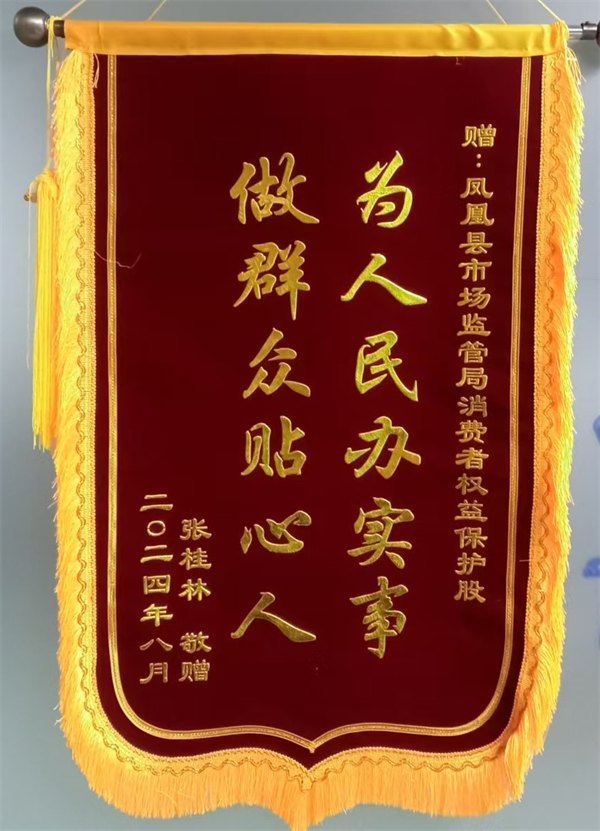 赠：凤凰县市场监管局消费者权益保护股
为人民办实事
做群众贴心人
张桂林 敬赠
二〇二四年八月